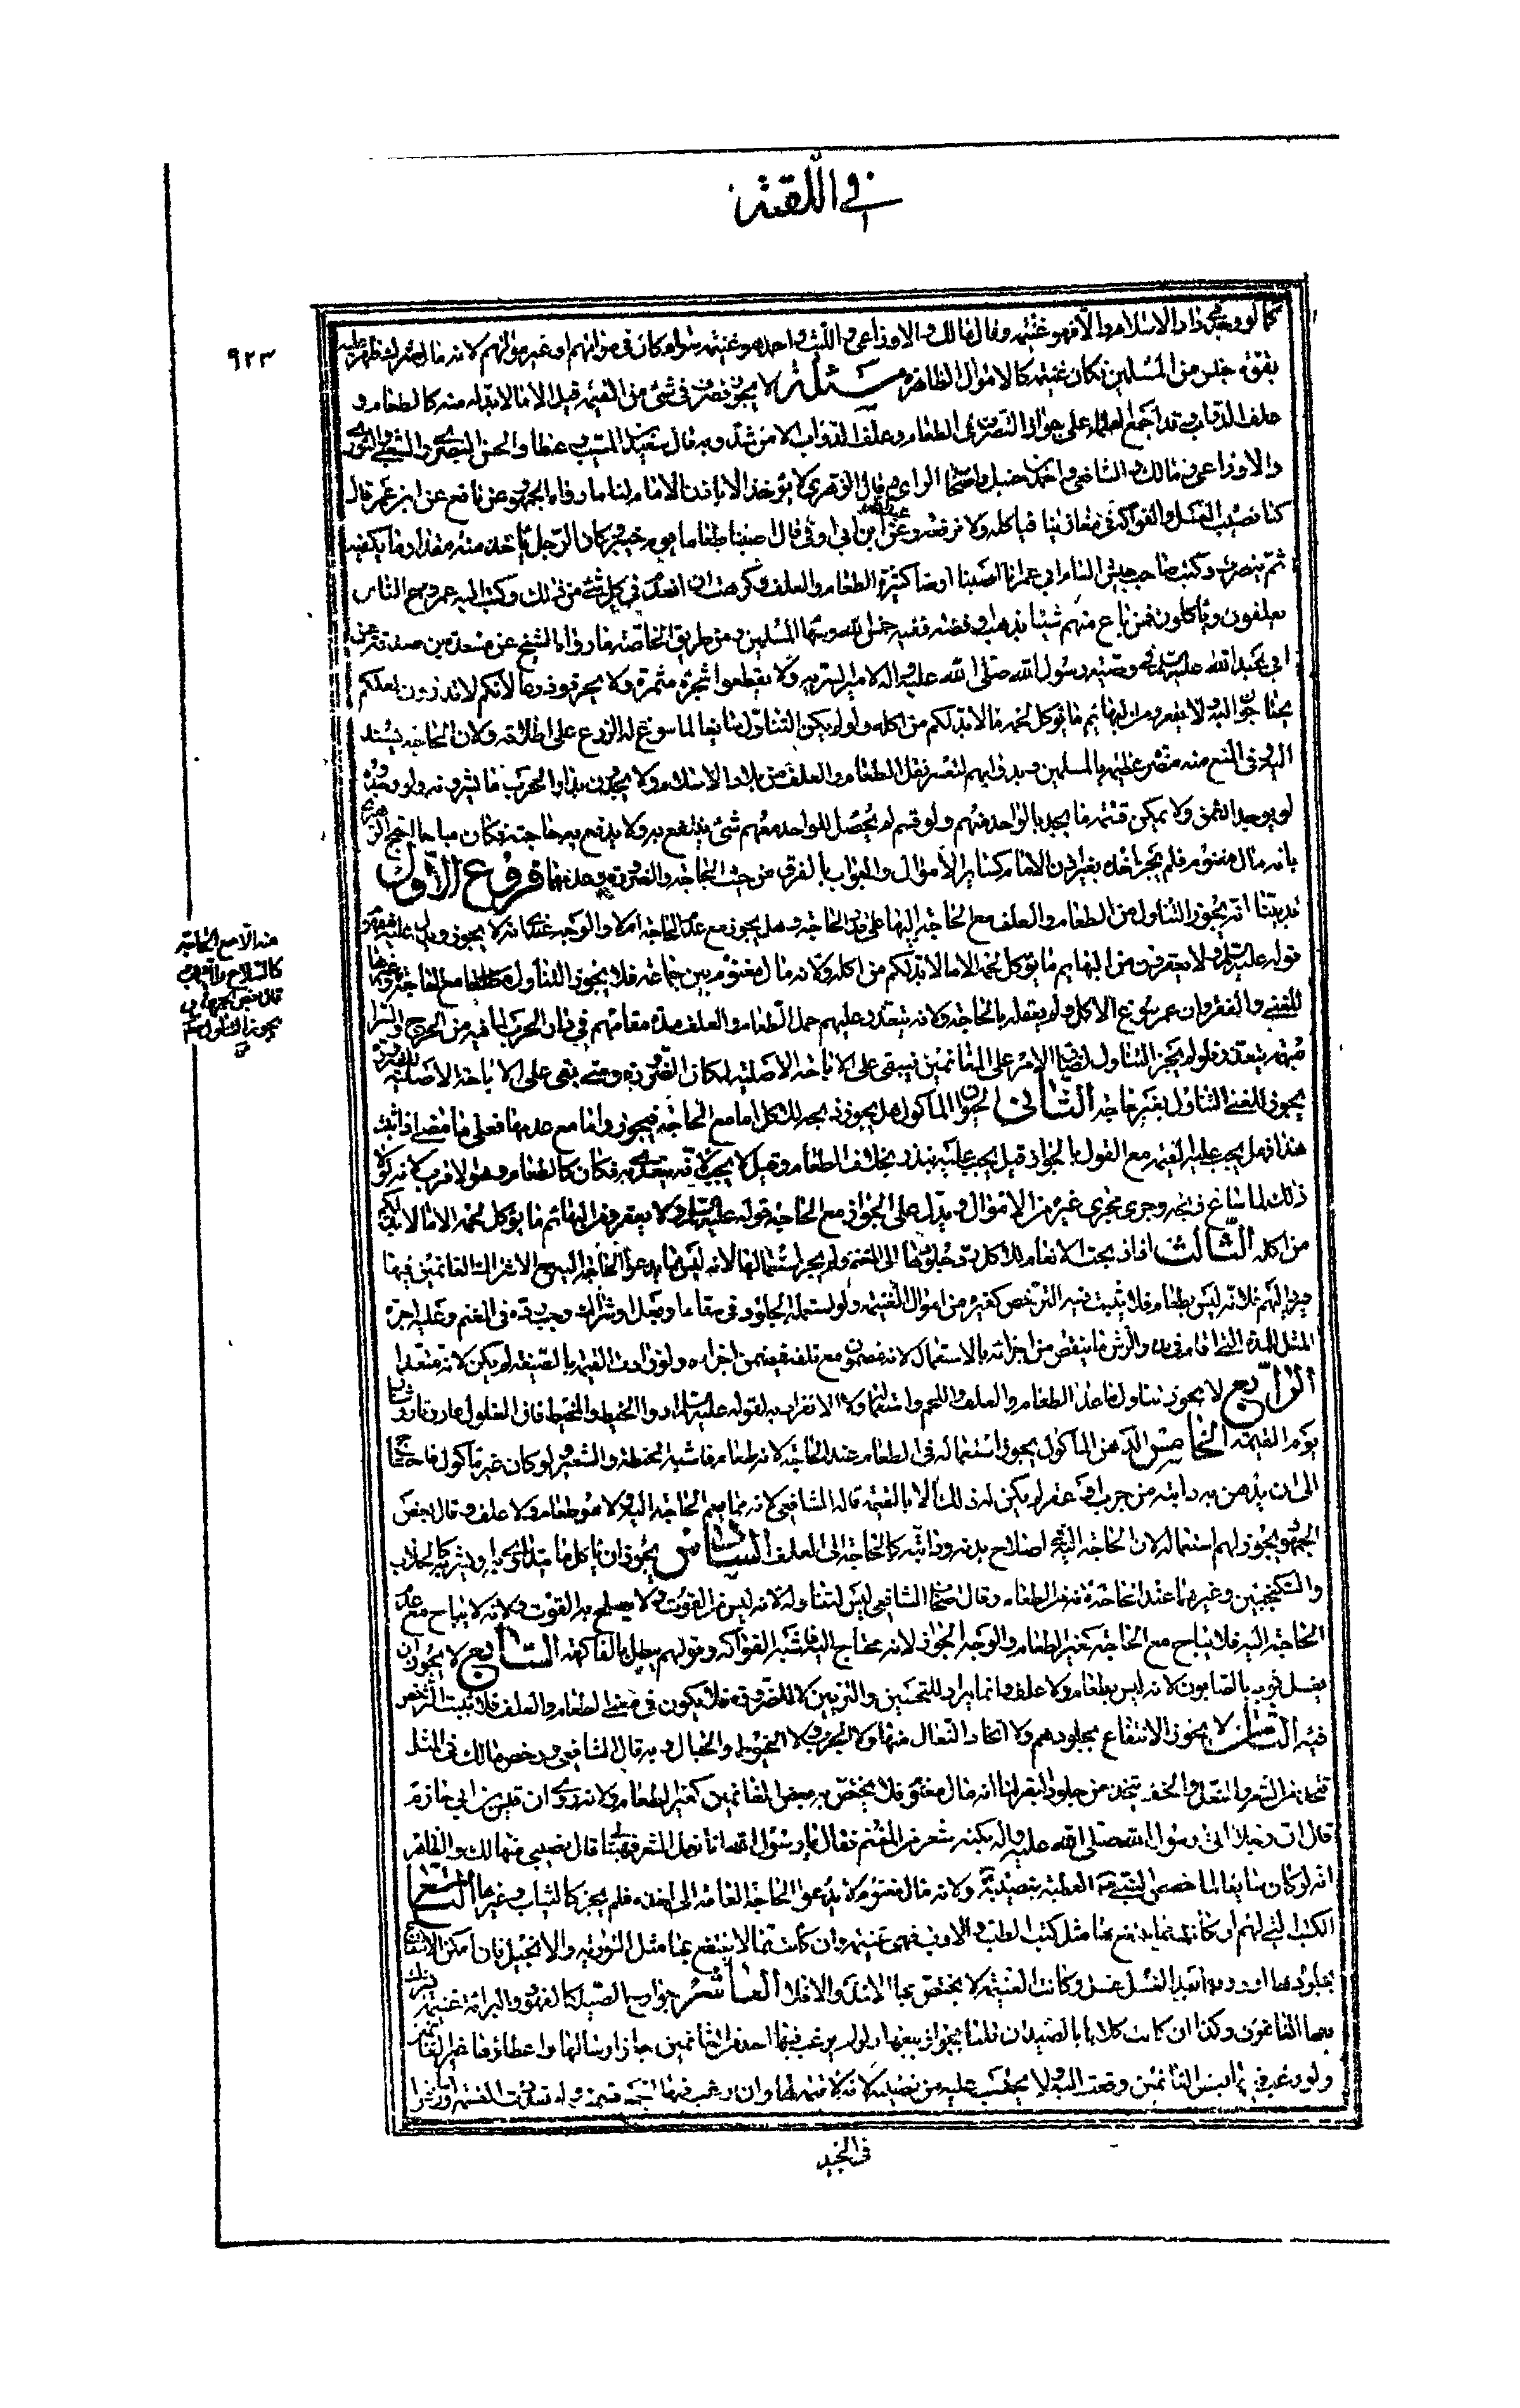 في اللقطة
٩٢٣
كما لو وجده في دار الاسلام والا فهو غنيمة وقال مالك والاوزاعي والليث واحمد هو غنيمة سواء كان في مواتهم او غير مواتهم لانه مال
بقوة جيش من المسلمين فكان غنيمة كالاموال الظاهرة مسئلة لا يجوز التصرف في شئ من الغنيمة قبل الا ما لا بد له منه كالطعام و
علف الدواب وقد اجمع العلماء على جواز التصرف في الطعام وعلف الدواب الا من شذ وبه قال سعيد بن المسيب وعطا والحسن البصري والشعبي والثوري
والاوزاعي ومالك والشافعي واحمد بن حنبل واصحاب الراي وقال الزهري لا يؤخذ الا باذن الامام لنا ما رواه الجمهور عن نافع عن ابن عمر قال
كنا نصيب العسل والفواكه في مغازينا فناكله ولا نرفعه وعن ابن ابي اوفى قال اصبنا طعاما يوم خيبر وكان الرجل ياخذ منه مقدار ما يكفيه
ثم ينصرف وكتب صاحب جيش الشام الى عمر انا اصبنا ارضا كثيرة الطعام والعلف وكرهت ان اتقدم في شئ من ذلك وكتب اليه عمر دع الناس
يعلفون وياكلون فمن باع منهم شيئا بذهب او فضة ففيه خمس الله وسهام المسلمين ومن طريق الخاصة ما رواه الشيخ عن مسعدة بن صدقة عن
ابي عبد الله عليه السلم في وصية رسول الله صلى الله عليه واله لامير السرية ولا تقطعوا شجرة مثمرة ولا تحرقوا زرعا لانكم لا تدرون لعلكم
تحتاجون اليه ولا تعقروا من البهائم ما يؤكل لحمه الا ما لا بد لكم من اكله ولو لم يكن التناول سايغا لما سوغ له الزرع على اطلاقه ولان الحاجة تشتد
اليه وفي المنع منه مضرة عظيمة بالمسلمين وبدوابهم لتعسر نقل الطعام والعلف من بلاد الاسلام ولا يجدون بدار الحرب ما يشترونه ولو وجدوه
لم يوجد الثمن ولا يمكن قسمة ما يجده الواحد منهم ولو قسم لم يحصل للواحد منهم شئ ينتفع به ولا يدفع به حاجته فكان مباحا احتج الزهري
بانه مال مغنوم فلم يجز اخذه بغير اذن الامام كساير الاموال والجواب بالفرق من حيث الحاجة والضرورة وعدمها فروع الاول
قد بينا انه يجوز التناول من الطعام والعلف مع الحاجة اليها على قدر الحاجة وهل يجوز مع عدم الحاجة ام لا والوجه عندي انه لا يجوز ويدل عليه مفهوم
قوله عليه السلم ولا تعقروا من البهايم ما يؤكل لحمه الا ما لا بد لكم من اكله ولانه مال مغنوم بين جماعة فلا يجوز التناول
منه الا مع الحاجة
كالسلاح والثياب
قال بعض الجمهور
يجوز التناول
للغني والفقير وان عمر سوغ الاكل ولم يقيده بالحاجة ولانه يتعذر عليهم حمل الطعام والعلف مدة مقامهم في دار الحرب لما فيه من الحرج والشرا
يجوز للغني التناول بغير حاجة الثاني الحيوان الماكول هل يجوز ذبحه للاكل اما مع الحاجة فيجوز واما مع عدمها فعلى ما مضى اذا ثبت
هذا فهل يجب عليه القيمة مع القول بالجواز قيل يجب عليه بخلاف الطعام وقيل لا يجب فكان كالطعام وهو الاقرب
ذلك لما ساغ ذبحه وجرى مجرى غيره من الاموال ويدل على الجواز مع الحاجة قوله عليه السلم ولا تعقروا من البهائم ما يؤكل لحمه الا ما لا بد لكم
من اكله الثالث اذا ذبحت الانعام للاكل رد جلودها الى المغنم ولم يجز استعمالها لانه ليس مما يدعو الحاجة اليه مع الاشتراك الغانمين فيها
فلانه ليس بطعام فلا يثبت فيه الترخص كغيره من اموال الغنيمة ولو استعمل الجلود في سقاء او نعل او شراك وجب رده في المغنم وعليه اجرة
المثل لمدة التي اقام في يده وارش ما ينقص من اجزائه بالاستعمال لانه مضمون مع تلفه فيضمن اجزاءه ولو زادت القيمة بالصنعة لم يكن له
الرابع لا يجوز تناول ما عدا الطعام والعلف واللحم ولا استعمالها ولا الانفراد به لقوله عليه السلم ادوا الخيط والمخيط فان الغلول عار ونار
يوم القيمة الخامس الدهن الماكول يجوز استعماله في الطعام عند الحاجة لانه طعام فاشبه الحنطة والشعير ولو كان غير ماكول فاحتاج
الى ان يدهن به دابته من جرب او عقر لم يكن له ذلك الا بالقيمة قاله الشافعي لانه مما يعم الحاجة اليه ولا هو طعام ولا علف وقال بعض
الجمهور يجوز لهم استعماله لان الحاجة اليه في اصلاح بدنه ودابته كالحاجة الى العلف السادس يجوز ان ياكل ما يتداوى به او يشربه كالجلاب
والسكنجبين وغيرهما عند الحاجة لانه من الطعام وقال اصحاب الشافعي ليس له تناوله لانه ليس من القوت ولا يصلح به القوت ولانه لا يباح مع عدم
الحاجة اليه فلا يباح مع الحاجة كغير الطعام والوجه الجواز لانه محتاج اليه فاشبه الفواكه وقولهم يبطل بالفاكهة السابع لا يجوز ان
يغسل ثوبه بالصابون لانه ليس بطعام ولا علف وانما يراد للتحسين والتزيين لا للضرورة فلا يكون في معنى الطعام والعلف فلا يثبت الترخص
فيه الثامن لا يجوز الانتفاع بجلودهم ولا اتخاذ النعال منها ولا الجرب ولا الخيوط والحبال وبه قال الشافعي ورخص مالك في الحبل
تتخذ من الشعر والنعل والخف يتخذ من جلود البقر لنا انه مال مغنوم فلا يختص به بعض الغانمين كغير الطعام ولانه روى ان قيس بن ابي حازم
قال ان رجلا اتى رسول الله صلى الله عليه واله بكبة شعر من المغنم فقال يا رسول الله انا نعمل الشعر فهبها لنا قال نصيبي منها لك والظاهر
انه لو كان سايغا لما خصص النبي العطية بنصيبه ولانه مال مغنوم لا يدعو الحاجة العامة الى اخذه فلم يجز كالثياب وغيرها التاسع
الكتب التي لهم ان كانت مما ينتفع بها مثل كتب الطب والادب فهي غنيمة وان كانت مما لا ينتفع بها مثل التورية والانجيل فان امكن الانتفاع
بجلودها بعد الغسل غسل وكانت الغنيمة لا يختص بها والا فلا العاشر جوارح الصيد كالفهود والبزاة غنيمة
بها الغانمون وكذا ان كانت كلاب الصيد ان قلنا بجواز بيعها ولو لم يرغب فيها احد من الغانمين جاز ارسالها واعطاؤها غير الغانمين
ولو رغب فيها بعض الغانمين دفعت اليه ولا يحتسب عليه من نصيبه لانه لا قيمة لها وان رغب فيها الجميع قسمت ولو تعذرت القسمة او تنازعوا
في الجيد